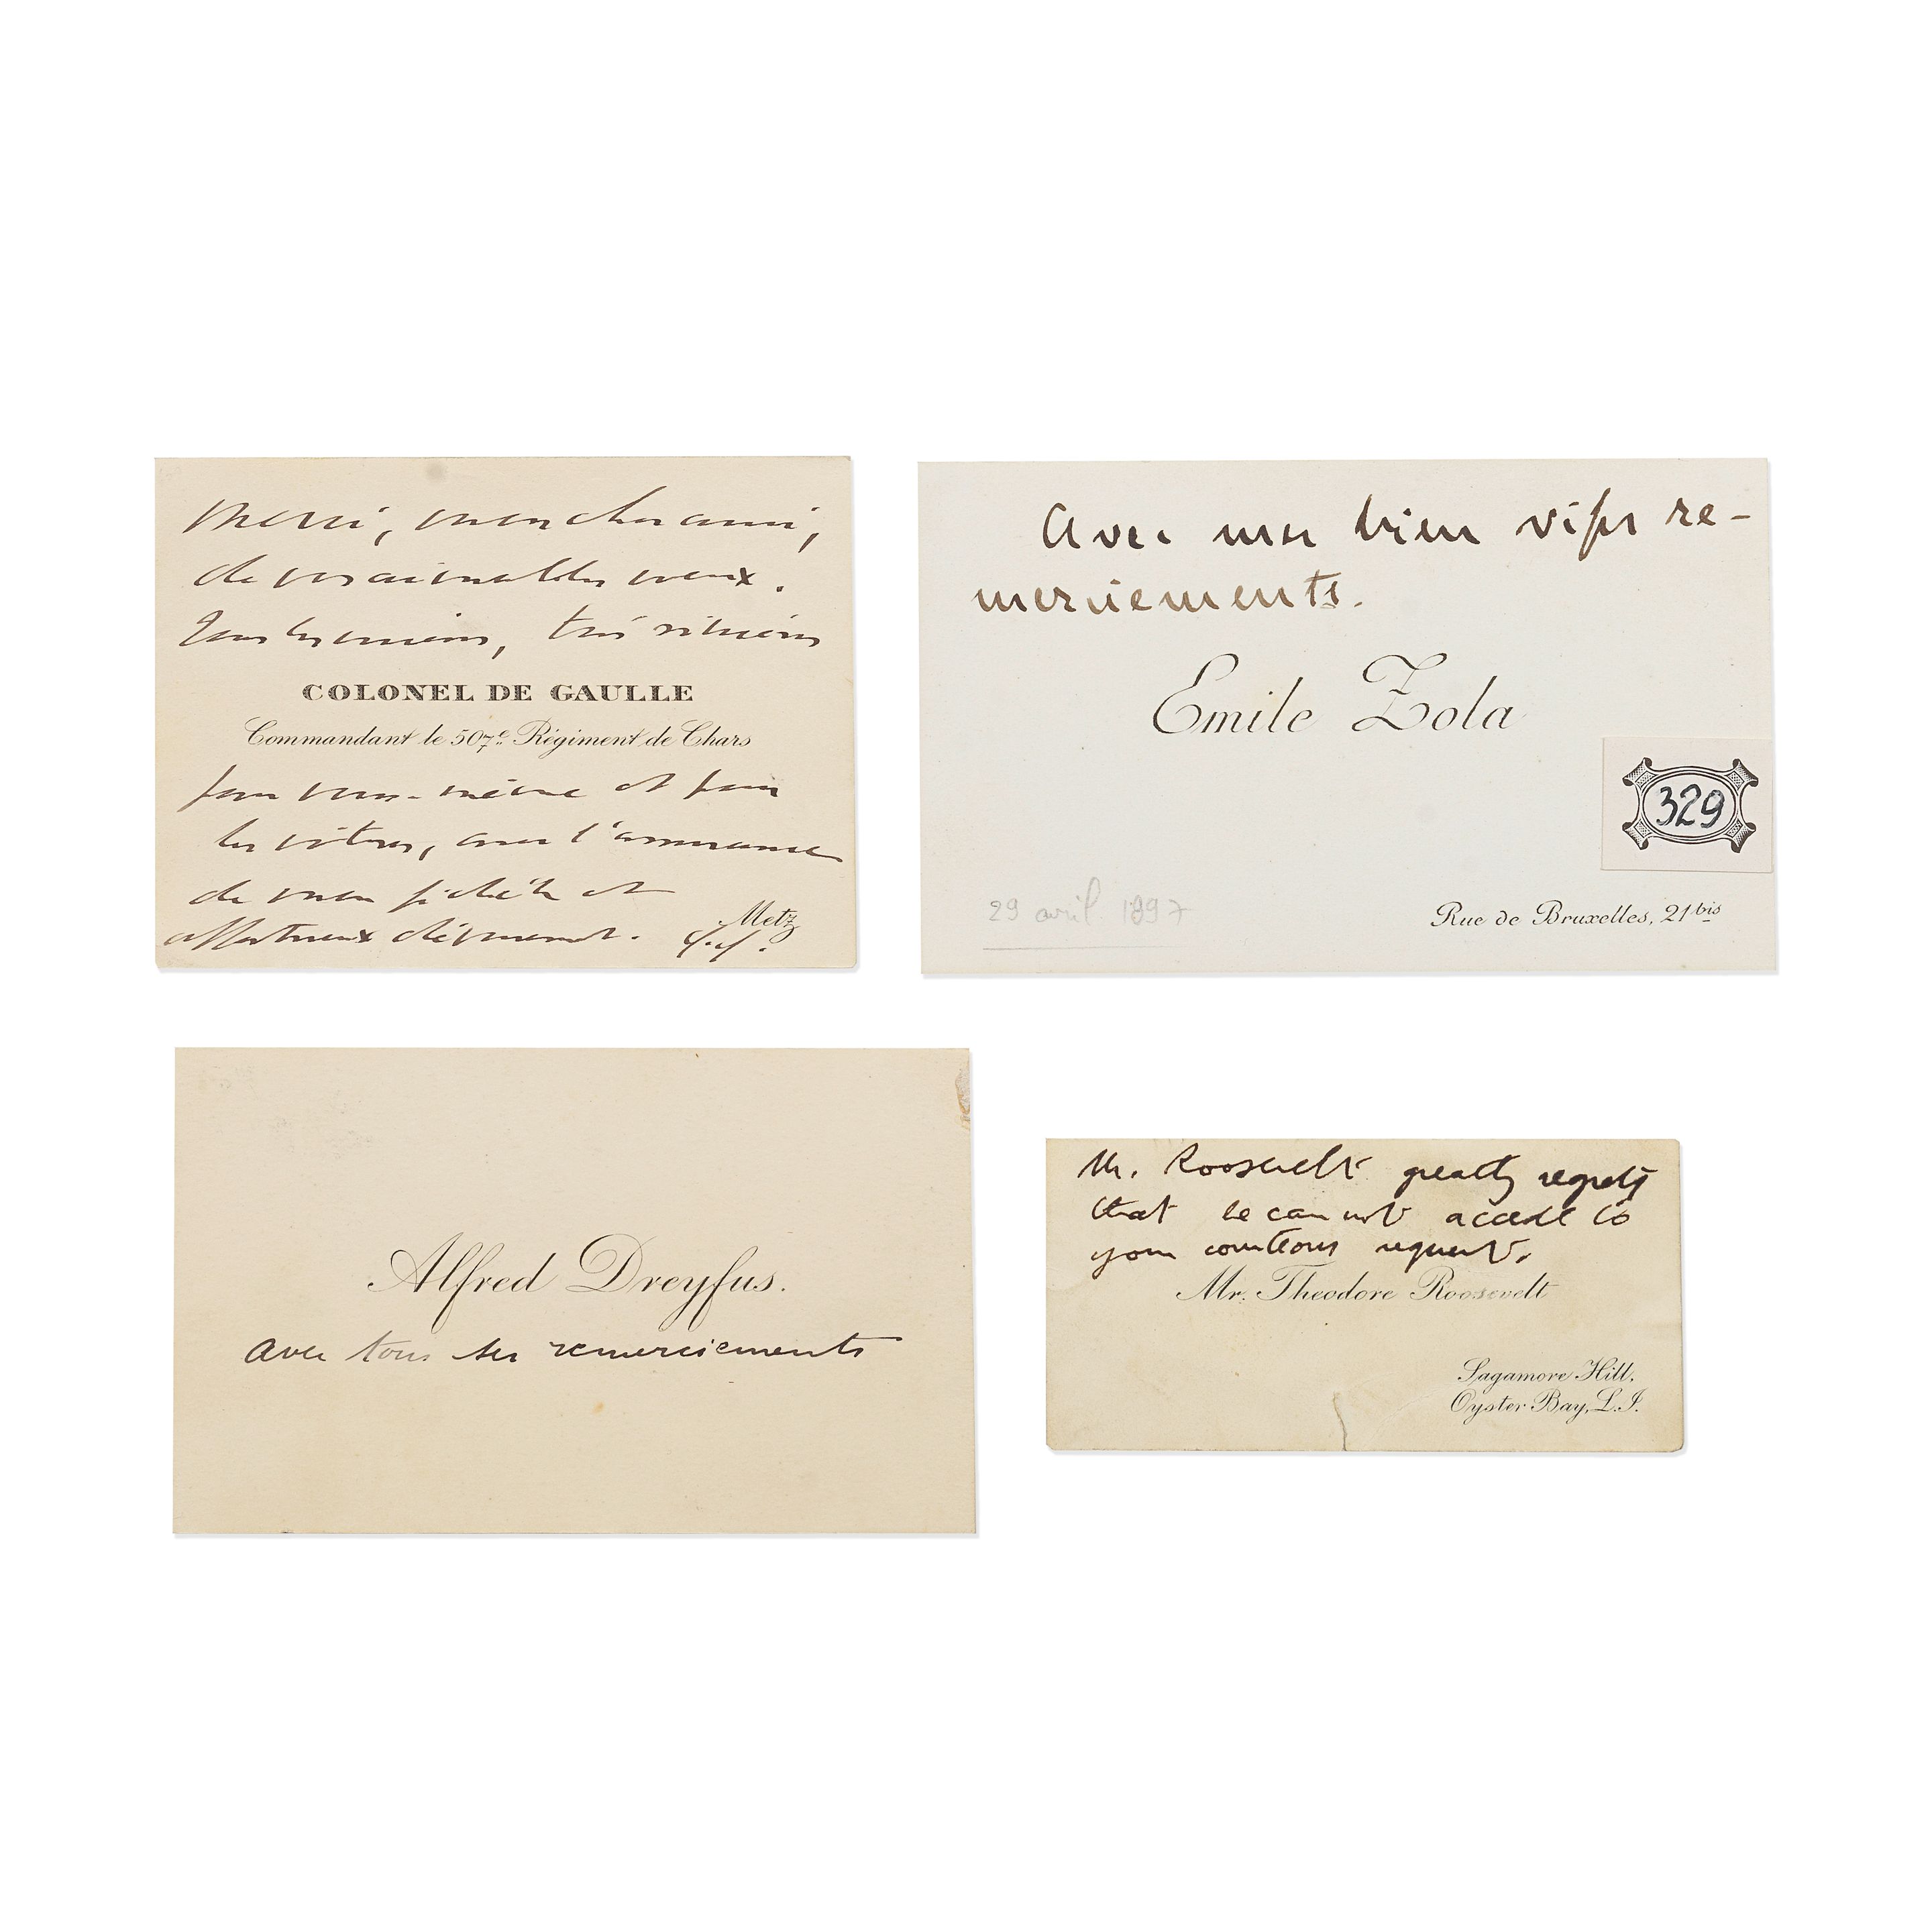 Merci, mon cher ami,
de vos aimables vœux.
Tous les miens, très sincères
COLONEL DE GAULLE
Commandant le 507e Régiment de Chars
pour vous-même et pour
les vôtres, avec l'assurance
de mon fidèle et
affectueux dévouement.
Metz
Avec mes bien vifs re-
merciements.
Emile Zola
329
29 avril 1897
Rue de Bruxelles, 21bis
Alfred Dreyfus.
avec tous ses remerciements
Mr. Roosevelt greatly regrets
that he can not accede to
your courteous request.
Mr. Theodore Roosevelt
Sagamore Hill,
Oyster Bay, L.I.